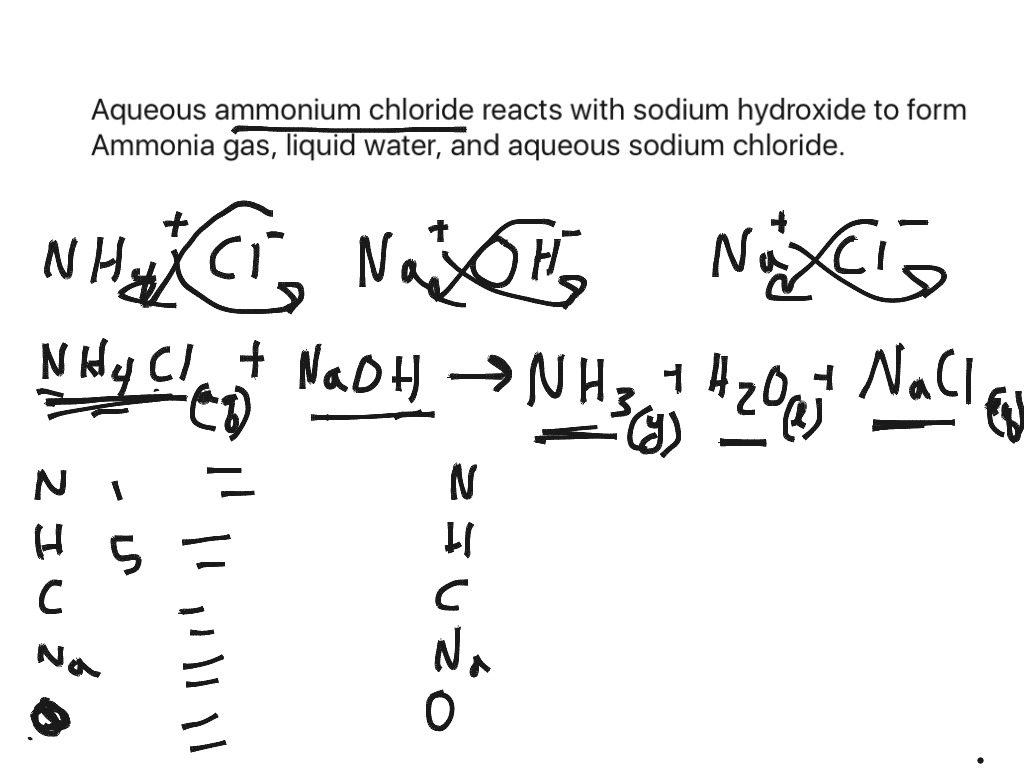 Aqueous ammonium chloride reacts with sodium hydroxide to form
Ammonia gas, liquid water, and aqueous sodium chloride.
NH4+ Cl- Na+ OH- Na+ Cl-
NH4Cl(aq) + NaOH → NH3(g) + H2O(l) + NaCl(aq)
N 1 = N
H 5 = H
C = C
Na = Na
O = O